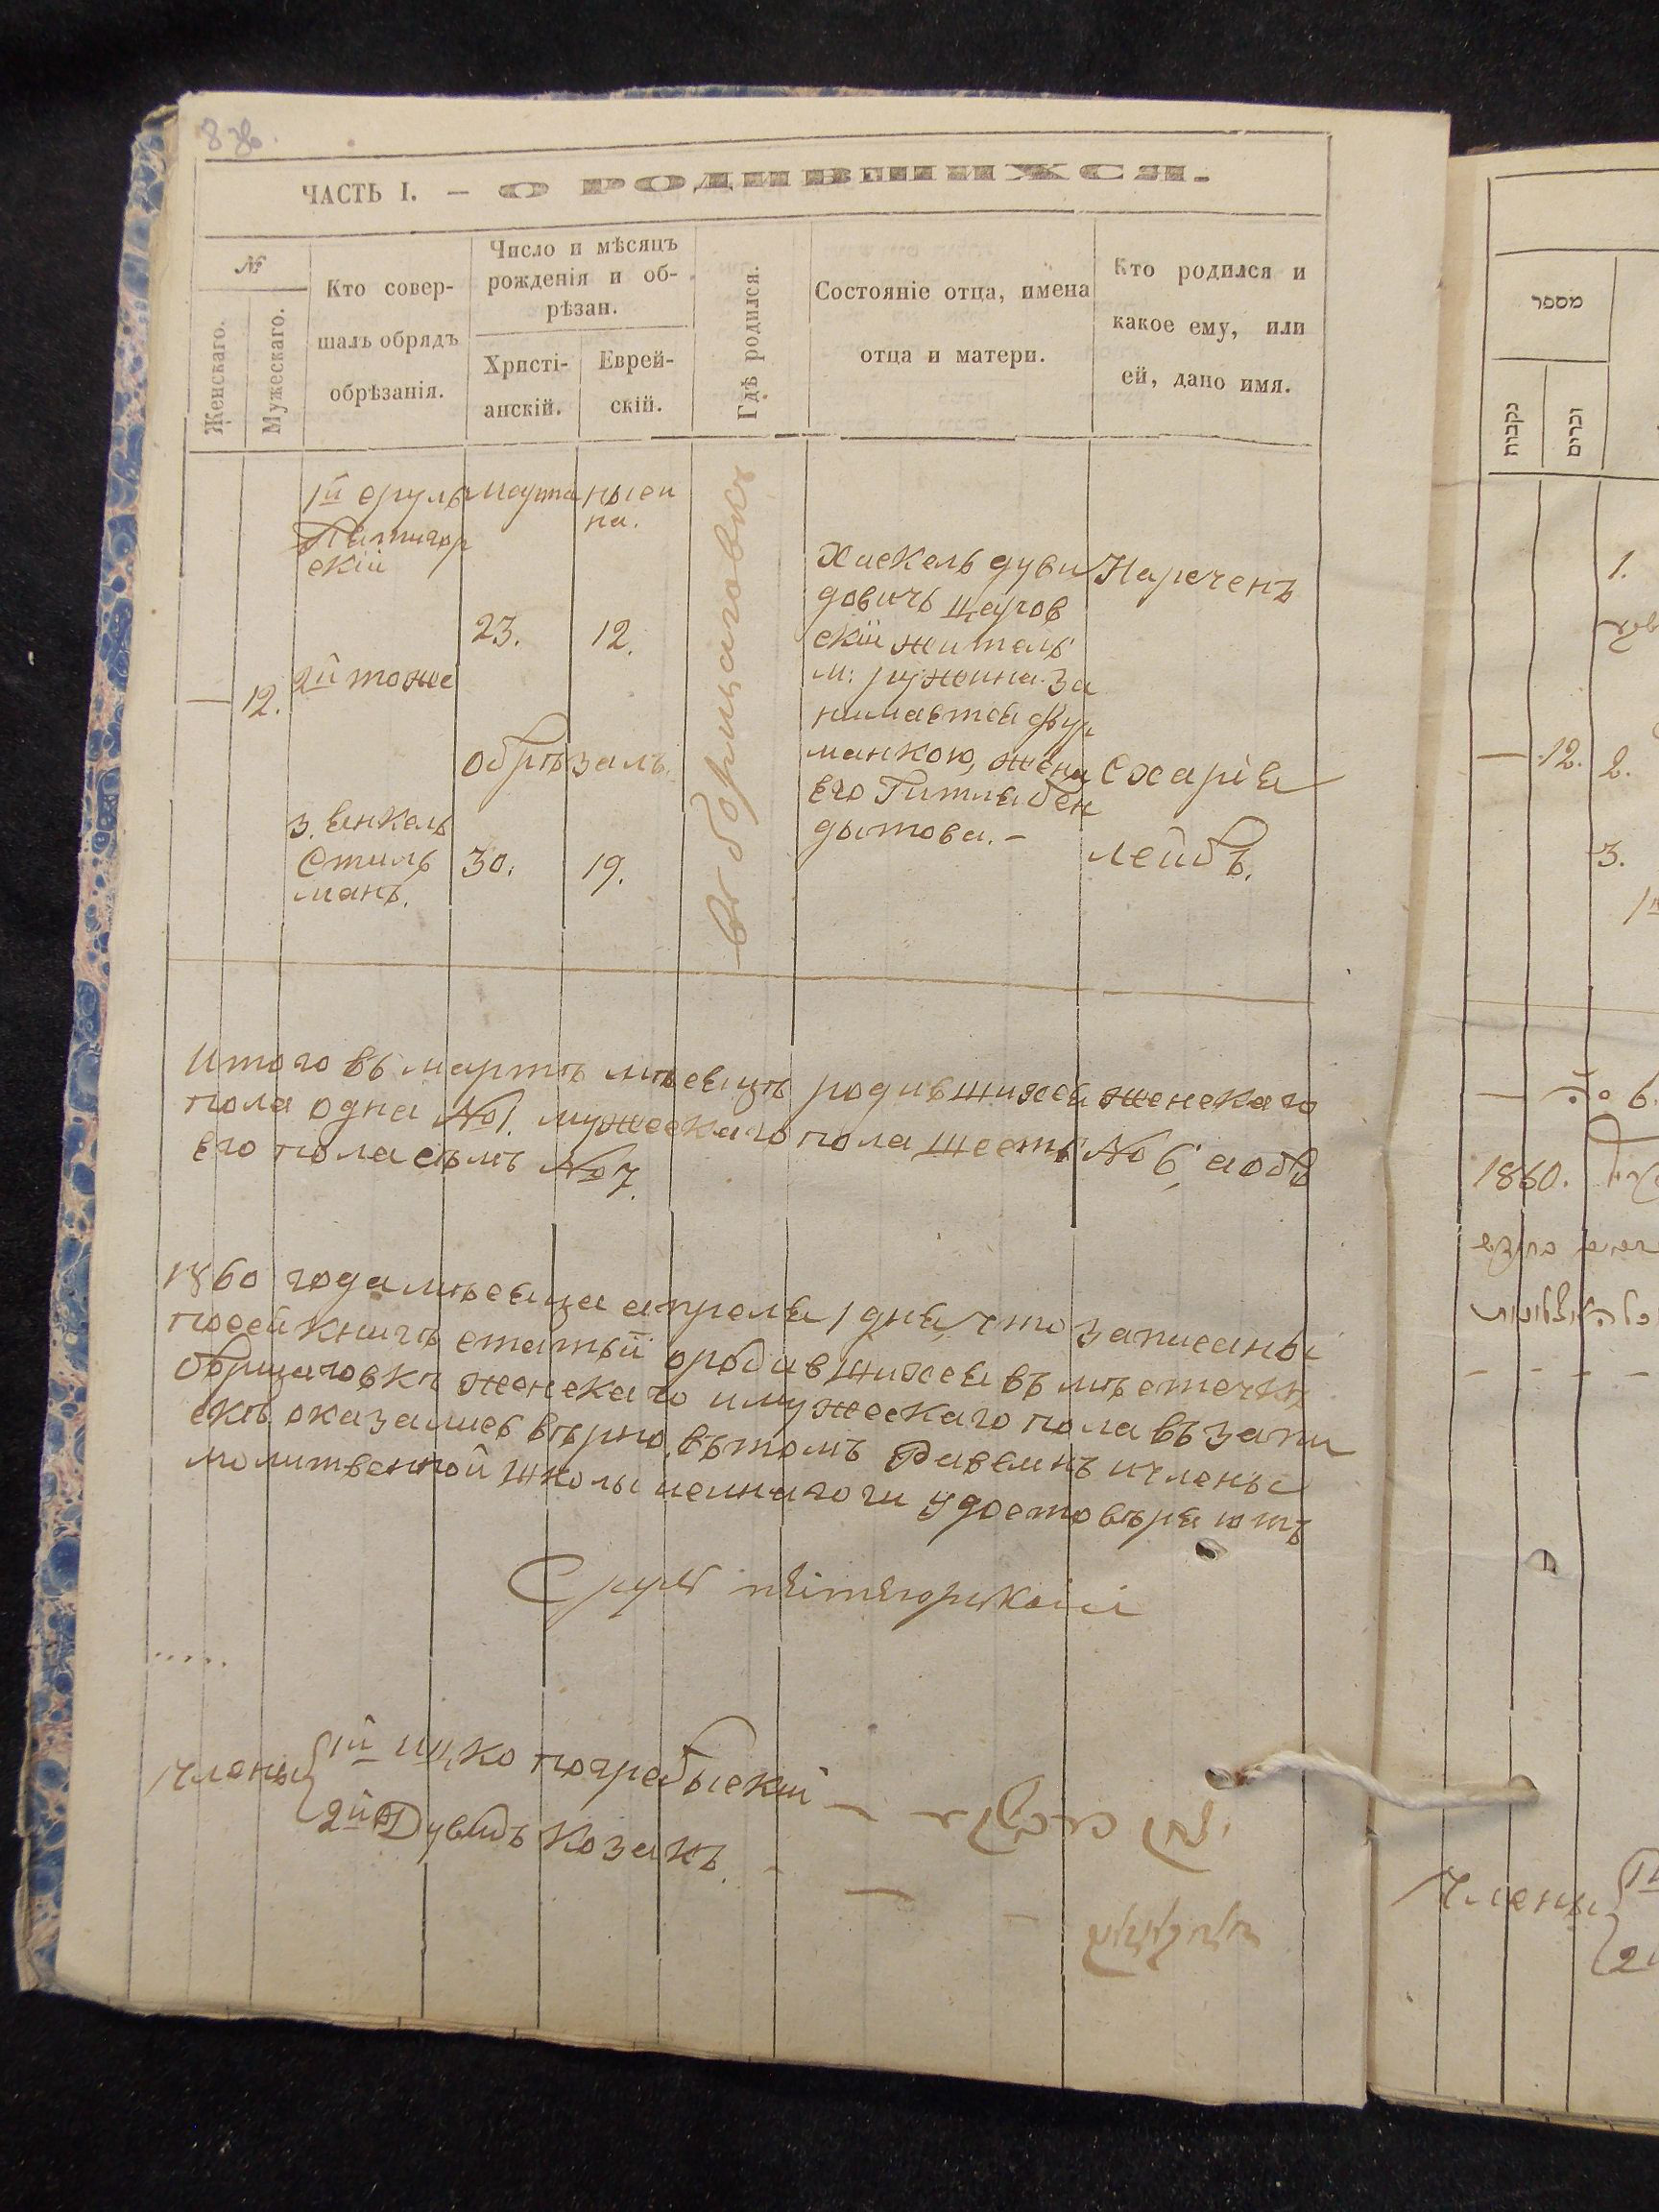 ЧАСТЬ I. — О РОДИВШИХСЯ.
№
Женскаго.
Мужескаго.
Кто совер-
шалъ обрядъ
обрѣзанія.
Число и мѣсяцъ
рожденія и об-
рѣзан.
Христі-
анскій.
Еврей-
скій.
Гдѣ родился.
Состояніе отца, имена
отца и матери.
Кто родился и
какое ему, или
ей, дано имя.
— 12.
1й сруль
Пятигор
скій
2й тоже
3. Янкель
Стиль
манъ.
Марта
23.
обрѣзалъ
30.
нысе
на.
12.
19.
въ борщаговкѣ
Хаскель дуви
довичь щаров
скій житель
м: ружина за
нимается фур
манкою, жена
его Гитля бен
дытова. —
Нареченъ
Схарія
лейбъ.
Итого въ мартѣ мѣсяцѣ родившихся женскаго
пола одна №1. мужескаго пола шесть №6, а обѣ
его пола сѣмъ №7.
1860 года мѣсяца апреля 1 дня, что записаны
посей книгѣ статьй ородившихся въ мѣстечкѣ
борщаговкѣ женскаго имужескаго пола възапи
скѣ оказались вѣрно, вътомъ Раввинъ ичлены
молитвенной школы
удостовѣряютъ
Сруль
Члены
1й ицко погребыскій —
2й Дувидъ Козакъ. -
מספר
נקבות
זכרים
1.
— 12. 2.
3.
1860.
Члены